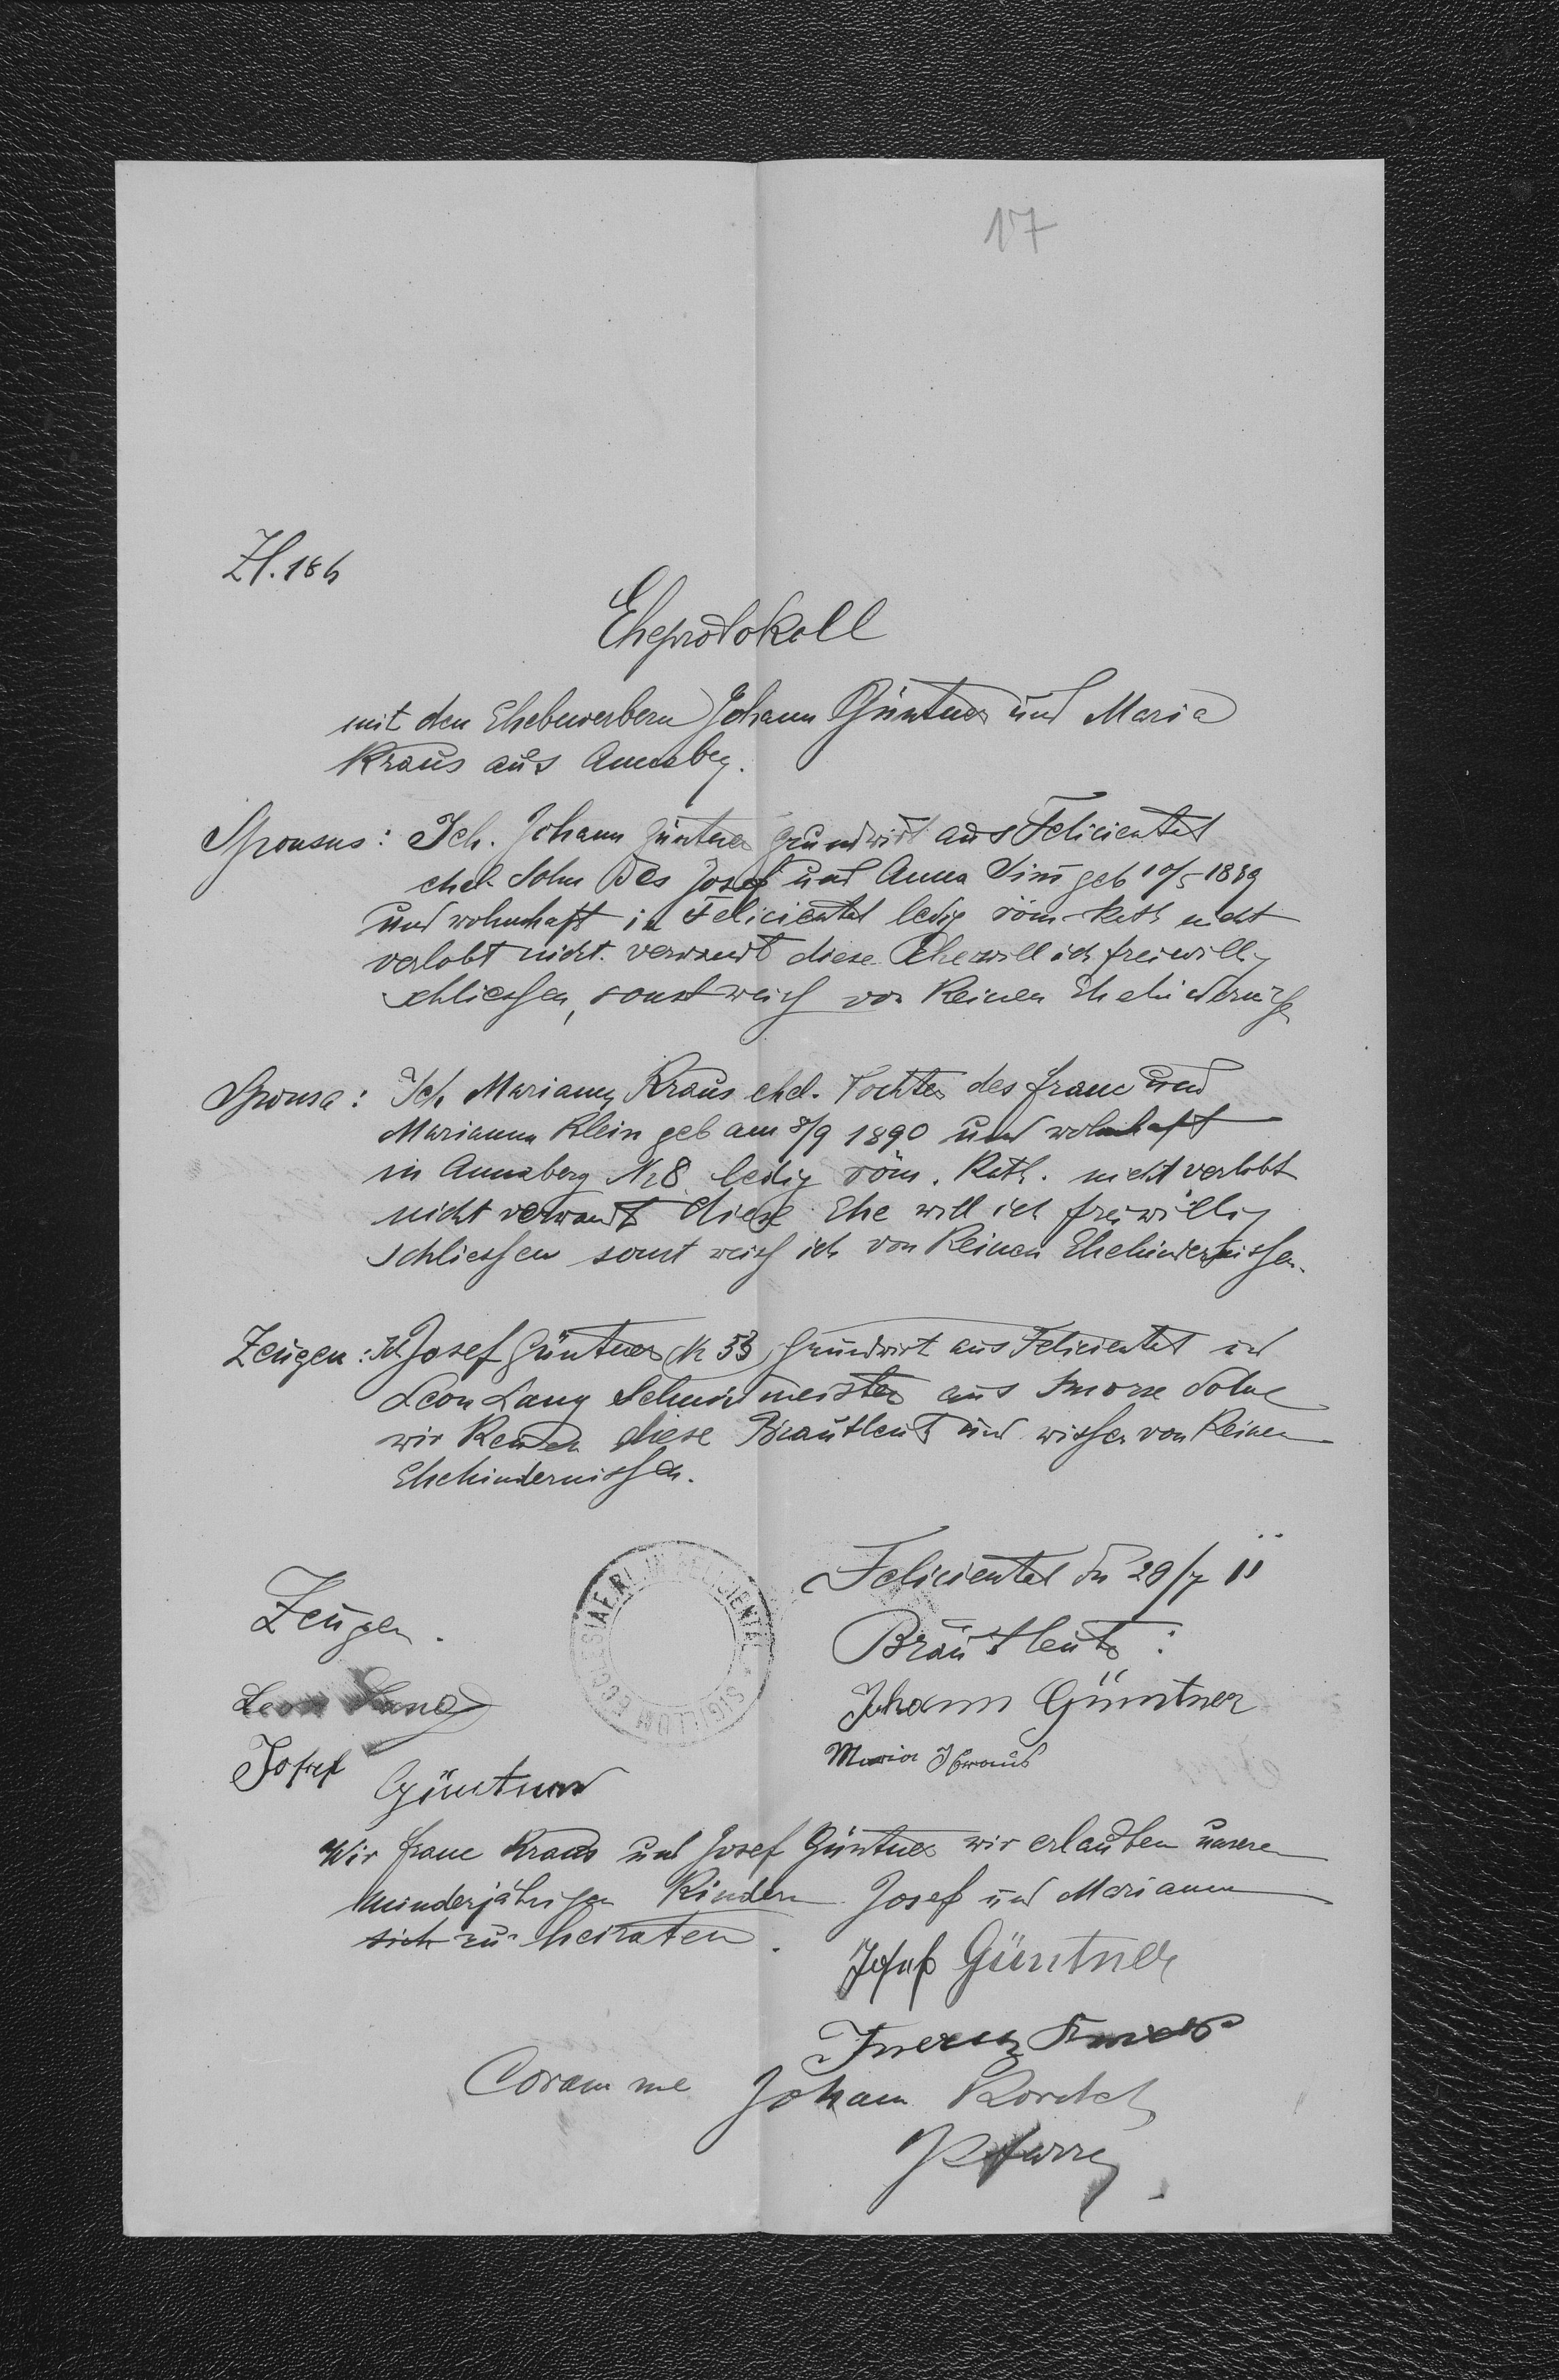 17
Zl. 186
Eheprotokoll
mit den Ehebewerbern Johann Güntner und Maria
Kraus aus Annaberg.
Sponsus: Ich. Johann Güntner Grundwirt aus Felicientel
ehel. Sohn des Josef und Anna geb 10/5 1889
und wohnhaft in Felicientel ledig röm-Kath nicht
verlobt nicht verwandt diese Ehe will ich freiwillig
schliessen, sonst weiss von Keinen Ehehindernissen
Sponsa: Ich Marianna Kraus ehel. Tochter des Franc und
Marianna Klein geb am 8/9 1890 und wohnhaft
in Annaberg Nr 8 ledig röm. Kath. nicht verlobt
nicht verwandt diese Ehe will ich freiwillig
schliessen sonst weiss ich von Keinen Ehehindernissen.
Zeugen: Ich Josef Güntner (Nr 53) Grundwirt aus Felicientel und
Leon Lang aus Smorze Dolne
wir Kennen diese Brautleute und wissen von Keinen
Ehehindernissen.
Felicientel den 29/7 11
Zeugen.
Brautleute:
SIGILLUM ECCLESIAE R. L. IN FELICIENTAL
Leon Lang
Johann Güntner
Josef Güntner
Maria Kraus
Wir Franc Kraus und Josef Güntner wir erlauben unseren
minderjährigen Kindern Josef und Mariann
sich zu heiraten.
Josef Güntner
Kraus
Coram me Johann
Pfarrer